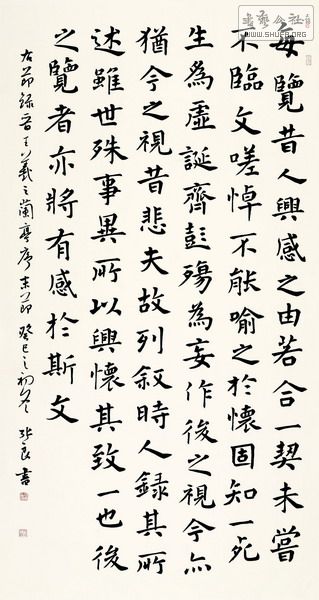 每覽昔人興感之由若合一契未嘗
不臨文嗟悼不能喻之於懷固知一死
生為虛誕齊彭殤為妄作後之視今亦
猶今之視昔悲夫故列敘時人錄其所
述雖世殊事異所以興懷其致一也後
之覽者亦將有感於斯文
右節錄晉王羲之蘭亭序末節 癸巳之初冬 張良書
书艺公社
www.shufa.org